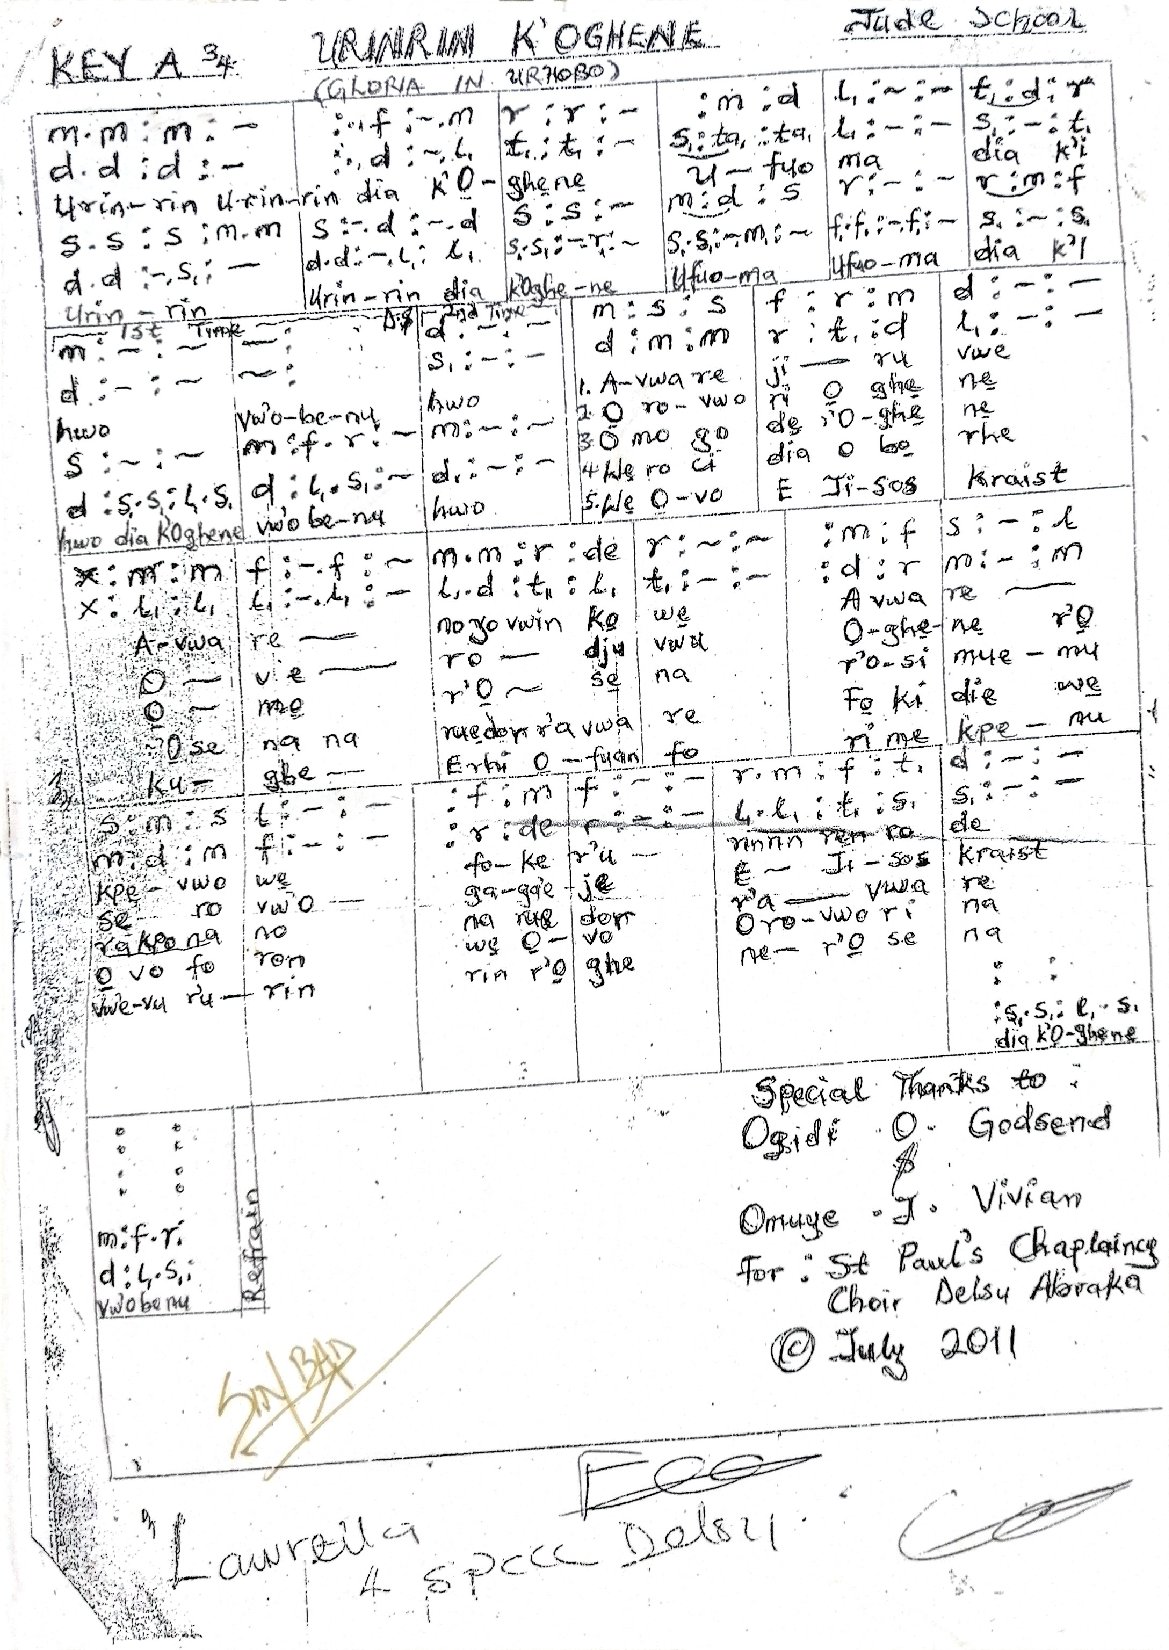 KEY A 3/4 URINRIN K'OGHENE Jude School
(GLORIA IN URHOBO)
m.m : m : - | :.,f :-.m | r : r : - | : m : d | l, : - : - | t, : d : r
d.d : d : - | :.,d :-.l, | t, : t, : - | s, : ta, : ta, | l, : - : - | s, : - : t,
Urin-rin Urin-rin dia k'O-ghene u-fuo ma dia k'i
s.s : s : m.m | s : -.d : -.d | s : s : - | m : d : s | r : - : - | r : m : f
d.d :-.s, : - | d.d :-.l, : l, | s,.s, :-.r, : - | s,.s, :-.m, : - | f,.f, :-.f, : - | s, : - : s,
Urin-rin Urin-rin dia kOghe-ne Ufuo-ma Ufuo-ma dia k'I
1st Time 2nd Time
m : - : - | - : | d : - : - | m : s : s | f : r : m | d : - : -
d : - : - | - : | s, : - : - | d : m : m | r : t, : d | l, : - : -
hwo vw'o-be-nu hwo
s : - : - | m : f.r : - | m : - : -
d : s,.s, : l,.s, | d : l,.s, : - | d, : - : -
hwo dia KOghene vw'o be-nu hwo
1. A-vwa re ji — ru vwe
2. Ọ ro-vwo ri Ọ ghe nẹ
3. Ọ mo go de r'O-ghe ne
4. Wẹ ro ci dia o bọ rhe
5. Wẹ Ọ-vo E Ji-sos Kraist
x : m : m | f : -.f : - | m.m : r : de | r : - : - | : m : f | s : - : l
x : l, : l, | l, : -.l, : - | l,.d : t, : l, | t, : - : - | : d : r | m : - : m
A-vwa re — no go vwin kọ wẹ A vwa re —
Ọ — vie — ro — dju vwu O-ghe-ne r'Ọ
Ọ — mẹ r'Ọ — sẹ na r'o-si mue-mu
'Ọse na na ruẹdon r'a vwa re Fọ ki die wẹ
ku- ghe — Erhi O-fuan fo ri me kpe-nu
s : m : s | l : - : - | : f : m | f : - : - | r.m : f : t, | d : - : -
m : d : m | f : - : - | : r : de | r : - : - | l,.l, : t, : s, | s, : - : -
kpe-vwo wẹ fo-ke r'u — rinrin ren ro de
se ro vw'O — ga-ga'e-jẹ E — Ji-sos Kraist
ra kpo na no na ruẹ don r'a — vwa re
Ọ vo fo ron wẹ Ọ-vo Oro-vwo ri na
vwe-vu r'u — rin rin r'Ọ ghe ne — r'Ọ se na
: s,.s, : l,.s,
dia k'O-ghene
m : f.r :
d : l,.s, :
vwobenu
Refrain
Special Thanks to :
Ogidi O. Godsend
&
Omuye .J. Vivian
For : St Paul's Chaplaincy
Choir Delsu Abraka
© July 2011
SINBAD
Lawretta
4 SPCCC Delsu